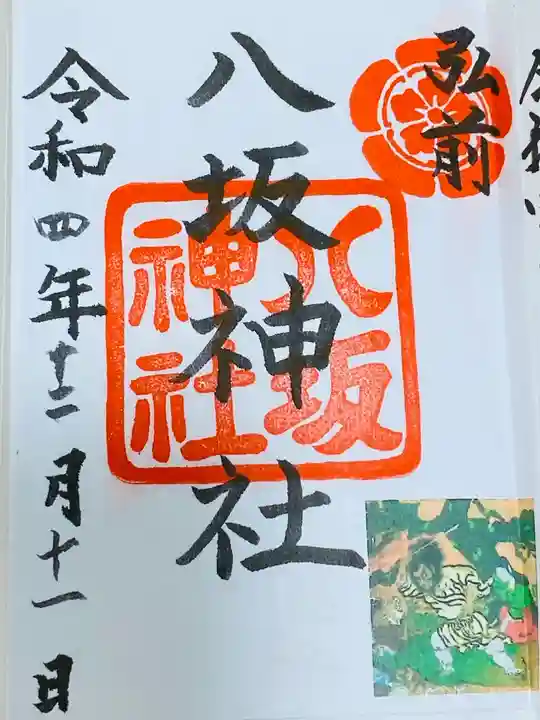 弘前
八坂神社
八坂
神社
令和四年十二月十一日